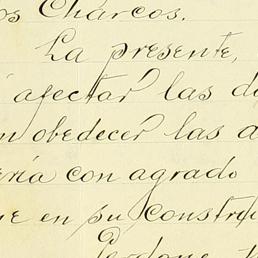 os Charcos.
La presente,
afectar las d
obedecer las a
ría con agrado
ue en su constru
Perdone